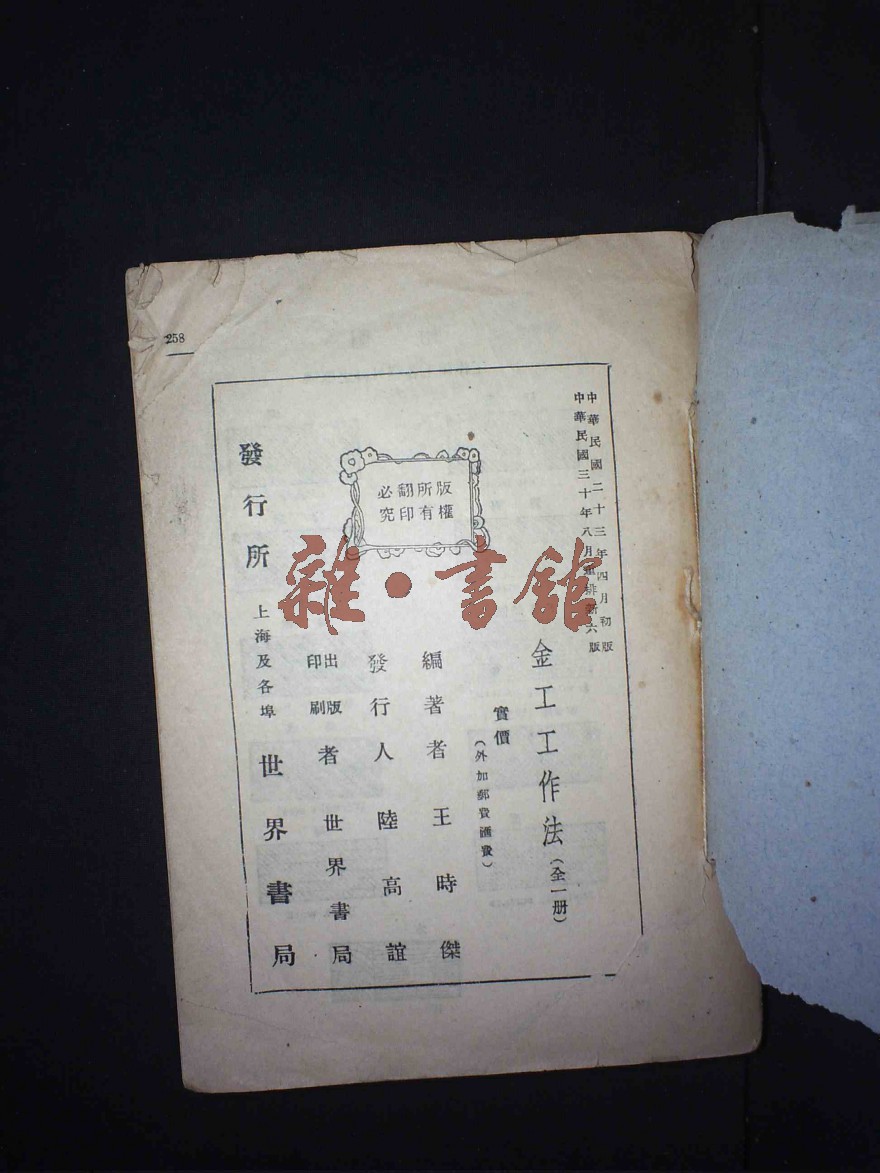 258
中華民國二十三年四月初版
中華民國三十年八月重排新六版
金工工作法(全一册)
實價
(外加郵費匯費)
版權所有翻印必究
編著者王時傑
發行人陸高誼
出版印刷者世界書局
發行所上海及各埠世界書局
雜·書館